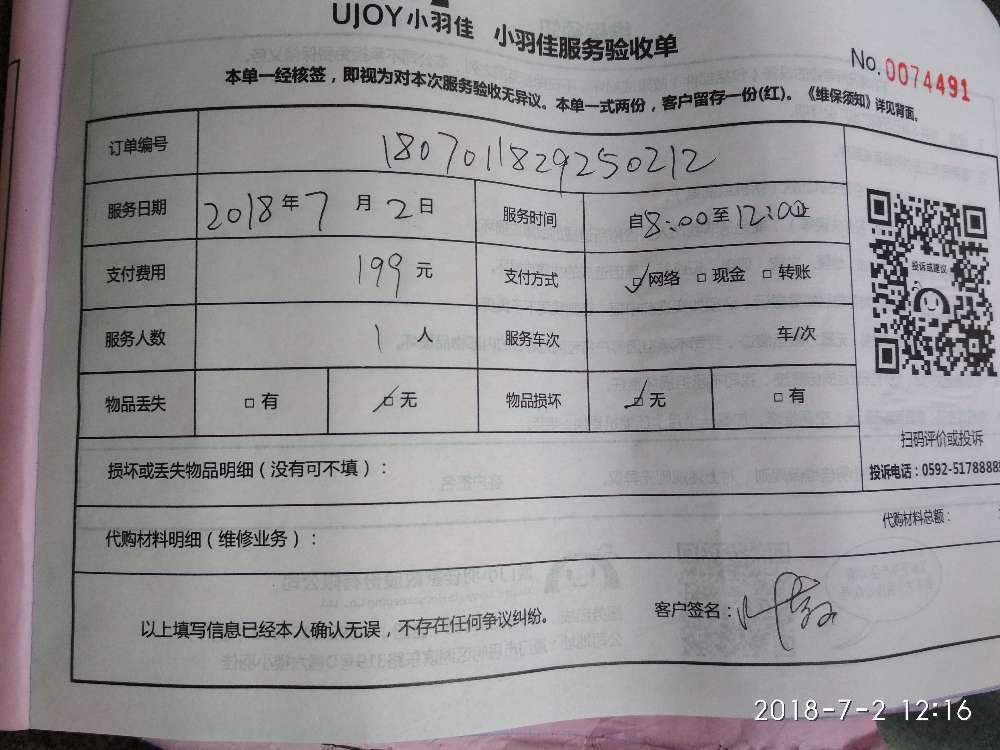 UJOY小羽佳 小羽佳服务验收单
No.0074491
本单一经核签，即视为对本次服务验收无异议。本单一式两份，客户留存一份(红)。《维保须知》详见背面。
订单编号 1807011829250212
服务日期 2018年7月2日 服务时间 自8:00至12:00止
支付费用 199元 支付方式 ☑网络 □现金 □转账
投诉或建议
服务人数 1人 服务车次 车/次
物品丢失 □有 ☑无 物品损坏 ☑无 □有
扫码评价或投诉
损坏或丢失物品明细（没有可不填）：
投诉电话：0592-5178888
代购材料总额：
代购材料明细（维修业务）：
以上填写信息已经本人确认无误，不存在任何争议纠纷。
客户签名：
2018-7-2 12:16